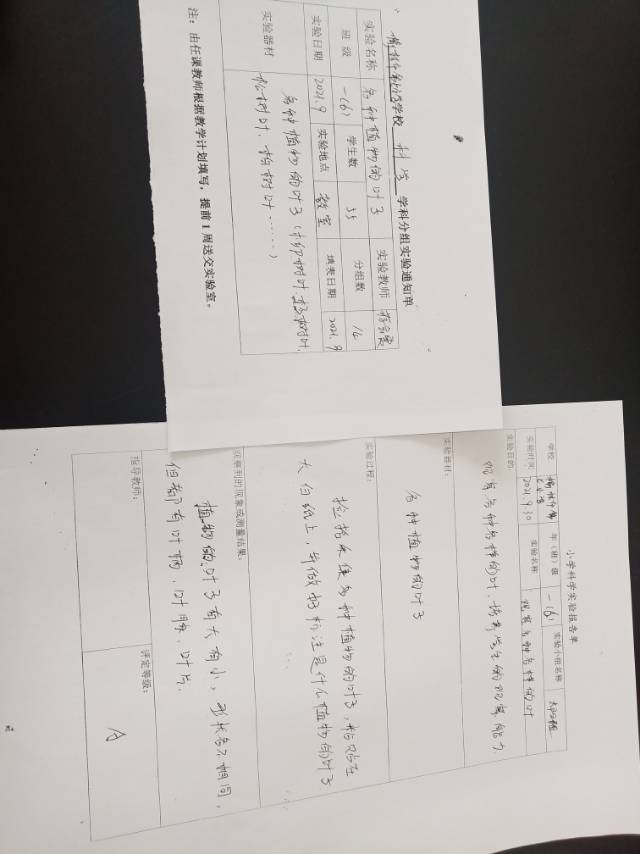 学校 科学 学科分组实验通知单
实验名称 各种植物的叶子 实验教师
班级 一(6) 学生数 55 分组数 14
实验日期 2021.9 实验地点 教室 填表日期 2021.9
实验器材 各种植物的叶子(
松树叶、柏树叶……)
注：由任课教师根据教学计划填写，提前1周送交实验室。
小学科学实验报告单
学校 年（班）级 一(6) 实验小组名称
实验时间 2021.9.30 实验名称 观察各种各样的叶
实验目的：
观察各种各样的叶，培养学生的观察能力
实验器材：
各种植物的叶子
实验过程：
捡拾采集各种植物的叶子，粘贴在
大白纸上，并做好标注是什么植物的叶子.
观察到的现象或测量结果：
植物的叶子有大有小，形状各不相同，
但都有叶柄，叶脉，叶片.
指导教师：
评定等级： A